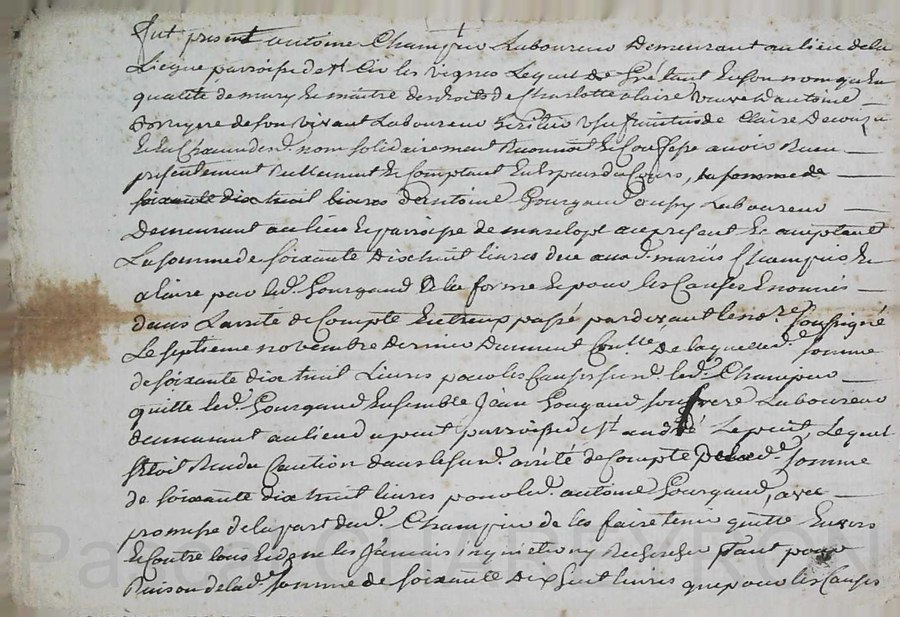 Fut present antoine Champin Laboureur demeurant au lieu de la
paroisse de st les vignes Lequel de gré tant en son nom qu'en
qualité de mary et maitre des droits de Charlotte claire veuve d'antoine
de son vivant Laboureur usufruitier de Claire
nom solidairement Reconnoit et Confesse avoir Receu
présentement Réellement et Comptant en Espece du Cours, la somme de
soixante dix huit livres d'antoine Gourgaud Laboureur
demeurant au lieu et paroisse de au present et acceptant
La somme de soixante dix huit livres due aux d. mariés Champin et
claire par led. Gourgaud en la forme et pour les Causes Enoncés
dans L'arrêté de Compte Entr'eux passé pardevant le no.re soussigné
Le septieme novembre dernier duement De laquelle d. somme
de soixante dix huit Livres pour les Causes susd. led. Champin
quitte led. Gourgaud Ensemble Jean Gourgaud son frere Laboureur
demeurant au lieu du pont paroisse de st andré Le puit, Lequel
s'étoit Rendu Caution dans le susd. arrêté de Compte de la d. somme
de soixante dix huit livres pour led. antoine Gourgaud, avec
promesse de la part dud. Champin de les faire tenir quitte Envers
et Contre tous et de ne les Jamais inquieter ny Rechercher Tant pour
Raison de lad. somme de soixante Dix huit livres que pour les Causes
Pa CHAREYRON